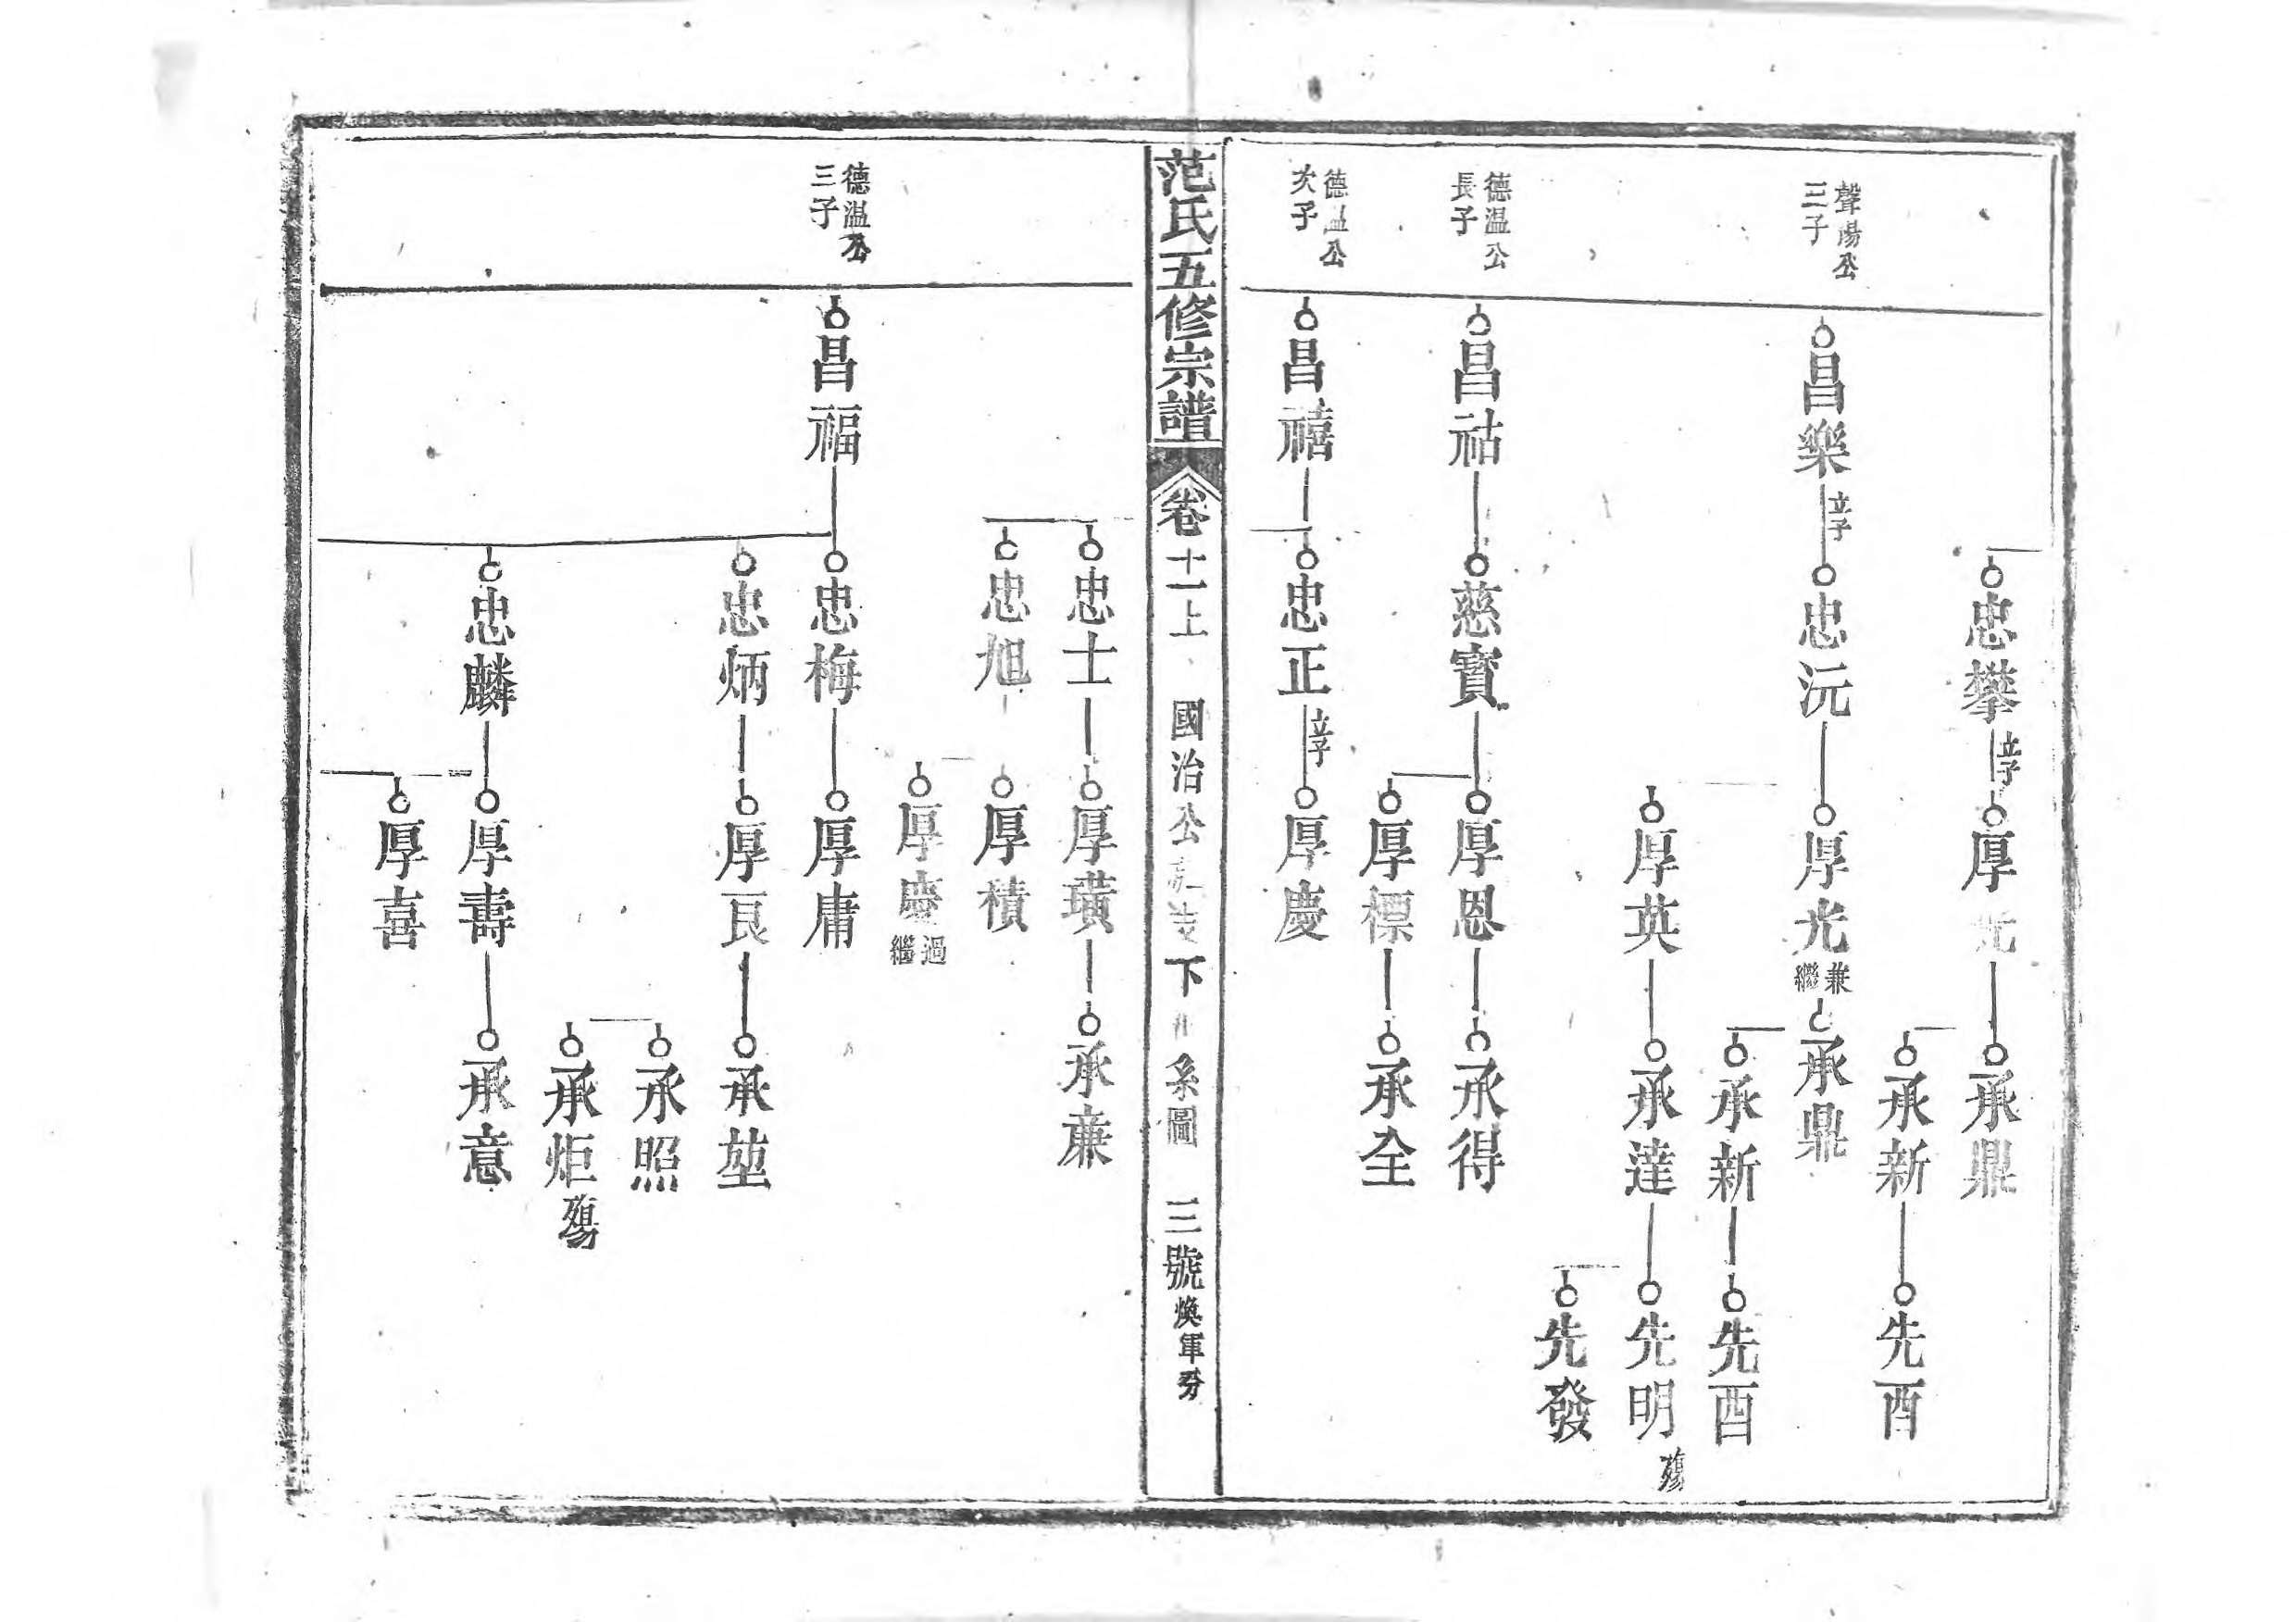 忠攀
立子
厚光
承鼎
承新
先酉
聲陽公
三子
昌樂
立子
忠沅
厚光
兼
繼
承鼎
承新
先酉
厚英
承達
先明
殤
先發
德温公
長子
昌祜
慈寶
厚恩
承得
厚標
承全
德温公
次子
昌禧
忠正
立子
厚慶
范氏五修宗譜
卷十一上
國治公
下
系圖
三號
煥軍分
忠士
厚璜
承蒹
忠旭
厚積
厚慶
過
繼
德温公
三子
昌福
忠梅
厚庸
忠炳
厚艮
承堃
承照
承炬
殤
忠麟
厚壽
承意
厚喜